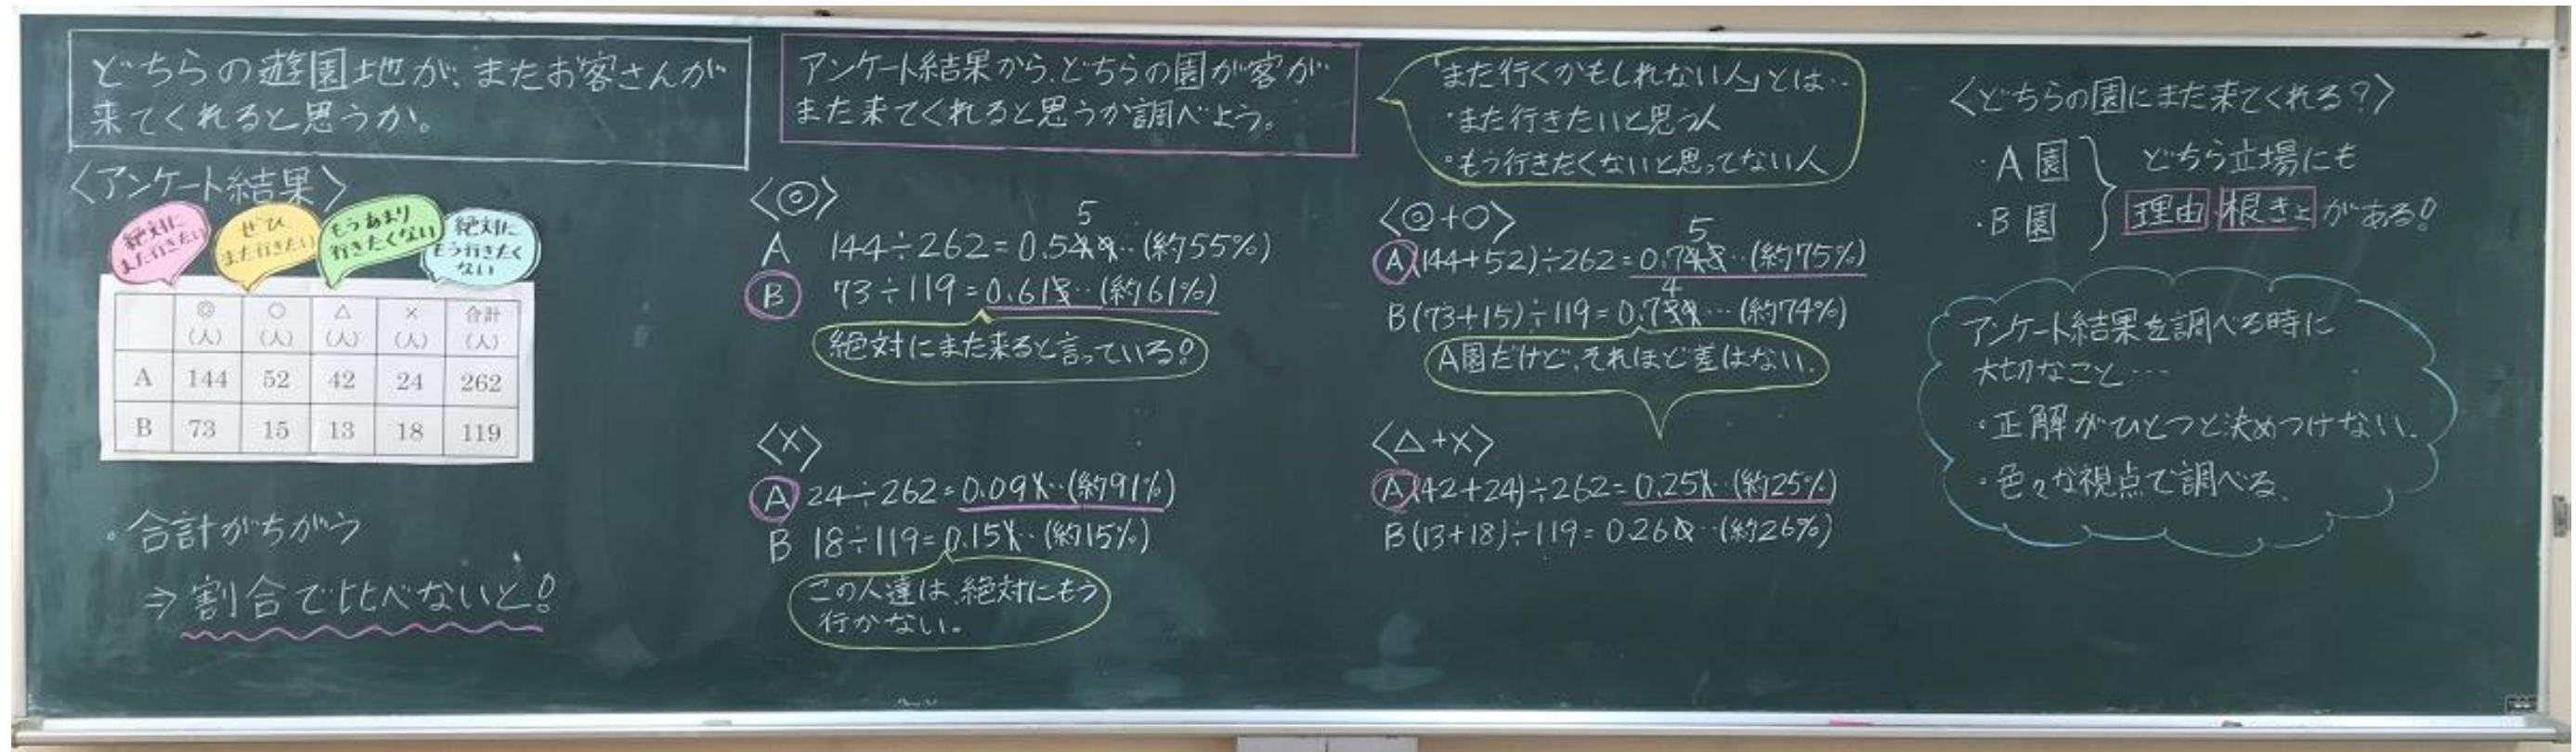 どちらの遊園地が、またお客さんが
来てくれると思うか。
〈アンケート結果〉
絶対に
また行きたい
ぜひ
また行きたい
もうあまり
行きたくない
絶対に
もう行きたく
ない
◎ ○ △ × 合計
(人) (人) (人) (人) (人)
A 144 52 42 24 262
B 73 15 13 18 119
・合計がちがう
⇒割合で比べないと!
アンケート結果から、どちらの園が客が
また来てくれると思うか調べよう。
〈◎〉
5
A 144÷262=0.549…(約55%)
B 73÷119=0.613…(約61%)
絶対にまた来ると言っている!
〈×〉
A 24÷262=0.091…(約91%)
B 18÷119=0.151…(約15%)
この人達は、絶対にもう
行かない。
「また行くかもしれない人」とは…
・また行きたいと思う人
・もう行きたくないと思ってない人
〈◎+○〉
5
A(144+52)÷262=0.748…(約75%)
4
B(73+15)÷119=0.739…(約74%)
A園だけど、それほど差はない。
〈△+×〉
A(42+24)÷262=0.251…(約25%)
B(13+18)÷119=0.260…(約26%)
〈どちらの園にまた来てくれる?〉
・A園
・B園
どちら立場にも
理由 根きょがある!
アンケート結果を調べる時に
大切なこと…
・正解がひとつと決めつけない。
・色々な視点で調べる。